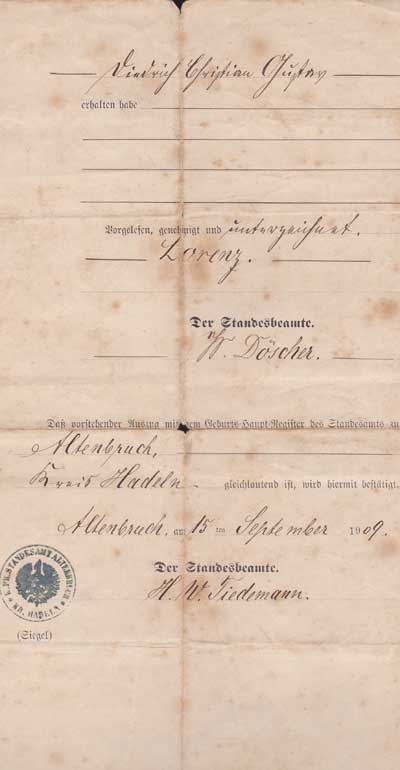 Diedrich Christian Gustav
erhalten habe
Vorgelesen, genehmigt und unterzeichnet.
Lorenz.
Der Standesbeamte.
Döscher.
Daß vorstehender Auszug mit dem Geburts-Haupt-Register des Standesamts zu
Altenbruch,
Kreis Hadeln - gleichlautend ist, wird hiermit bestätigt.
Altenbruch, am 15 ten September 1909.
Der Standesbeamte.
H. W. Tiedemann.
K. PR. STANDESAMT ALTENBRUCH
KR. HADELN
(Siegel)